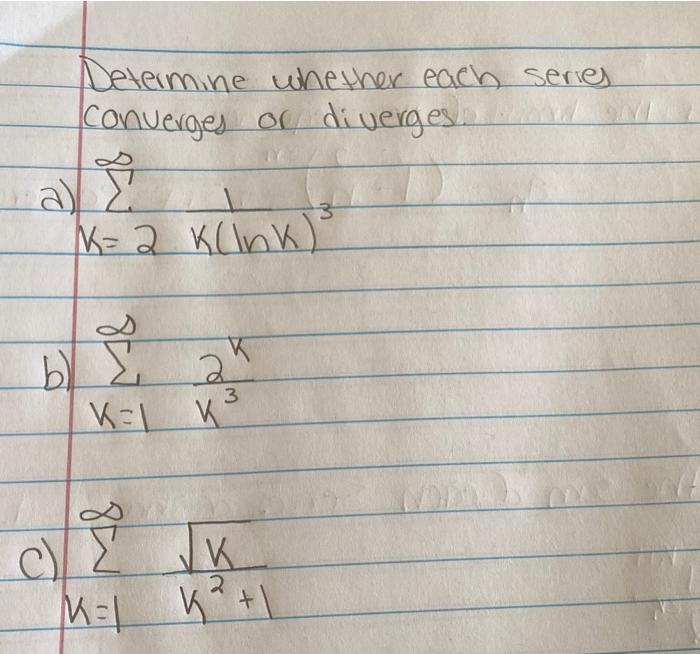 Determine whether each series
converges or diverges.
a) ∞ Σ K=2 1/K(lnK)³
b) ∞ Σ K=1 2^K/K³
c) ∞ Σ K=1 √K/K²+1